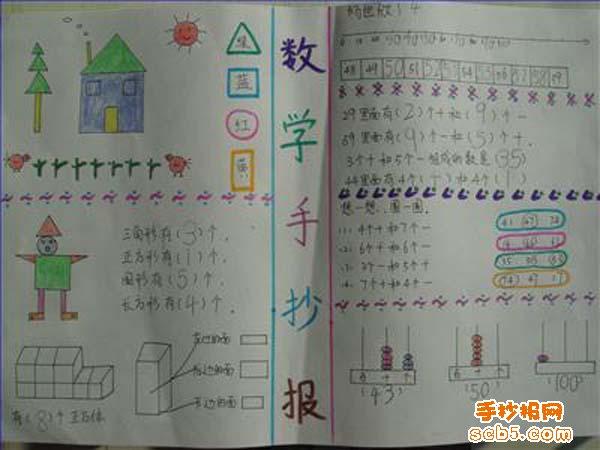 绿
蓝
红
黄
三角形有(3)个,
正方形有(1)个,
圆形有(5)个,
长方形有(4)个,
有(8)个正方体
左边的面
右边的面
数学手抄报
48 49 50 51 52 53 54 55 56 57 58 59
29里面有(2)个十和(9)个一
59里面有(9)个一和(5)个十.
3个十和5个一组成的数是(35)
44里面有4个(十)和4个(一)
想一想,圈一圈.
4个十和7个一
6个十和6个一
3个一和5个十
7个十和4个一
百 十 个
(43)
百 十 个
(50)
(100)
手抄报网
scb5.com